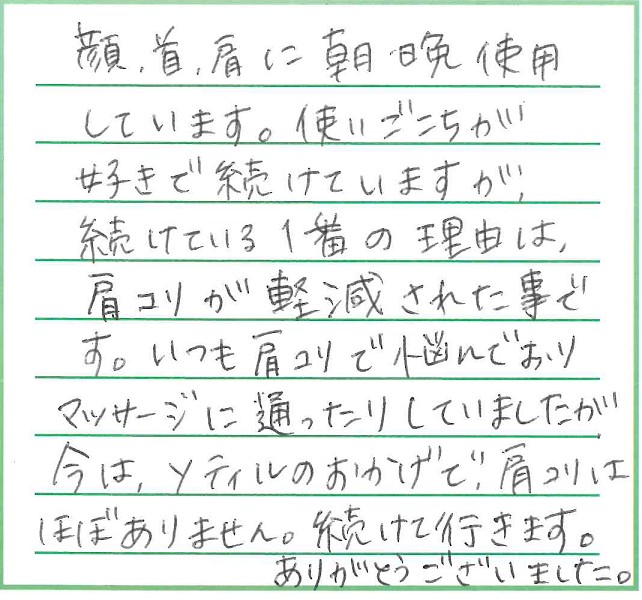 顔、首、肩に朝・晩使用
しています。使いごこちが
好きで続けていますが、
続けている1番の理由は、
肩コリが軽減された事で
す。いつも肩コリで悩んでおり
マッサージに通ったりしていましたが
今は、ソティルのおかげで、肩コリは
ほぼありません。続けて行きます。
ありがとうございました。